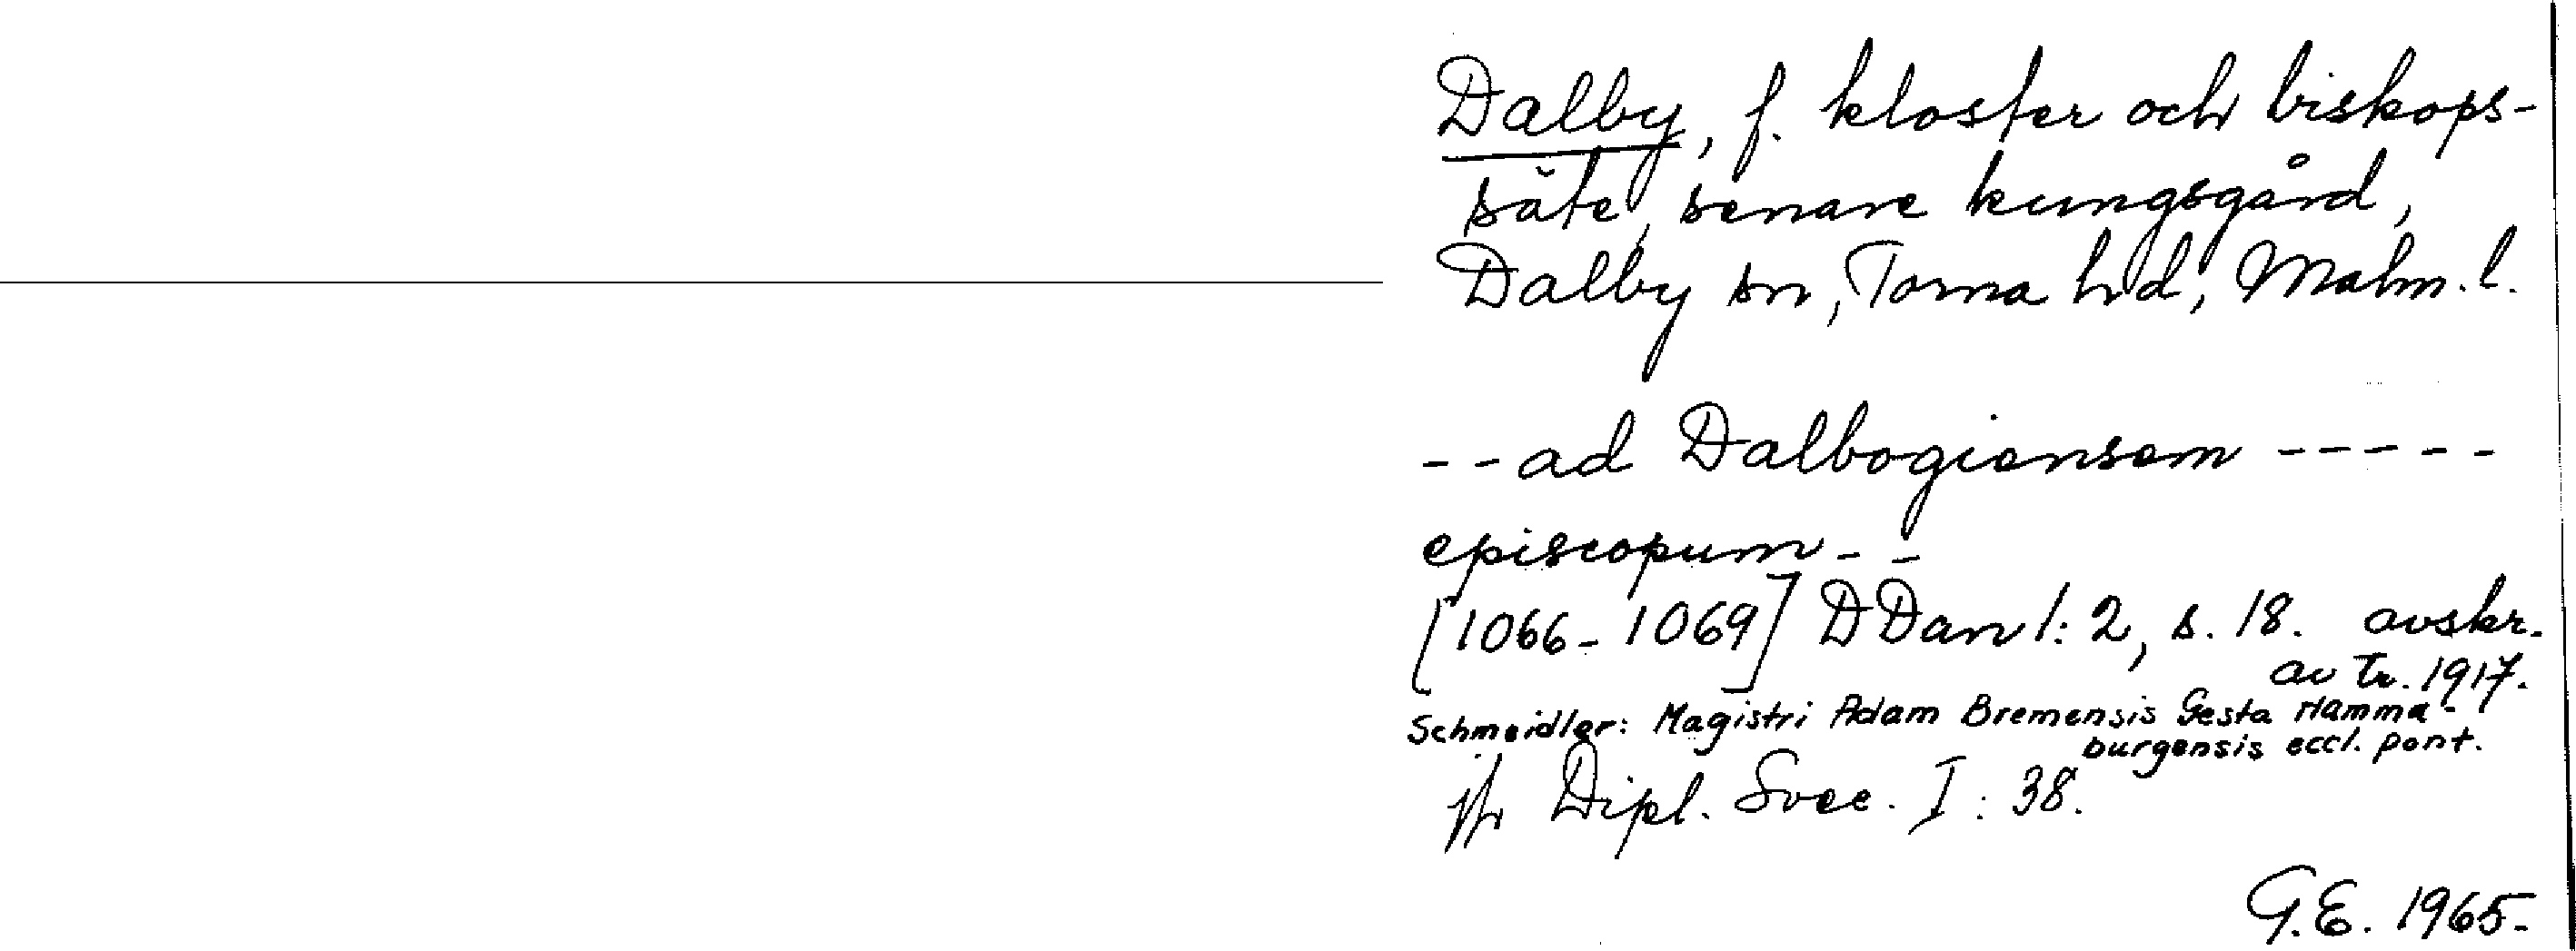 Dalby, f. kloster och biskops-
säte, senare kungsgård,
Dalby sn, Torna hd, Malm. l.
-- ad Dalbogiensem -----
episcopum --
[1066-1069] DDan 1:2, s. 18. avskr.
av tr. 1917.
Schmeidler: Magistri Adam Bremensis Gesta Hamma-
burgensis eccl. pont.
jfr Dipl. Svec. I: 38.
G.E. 1965.